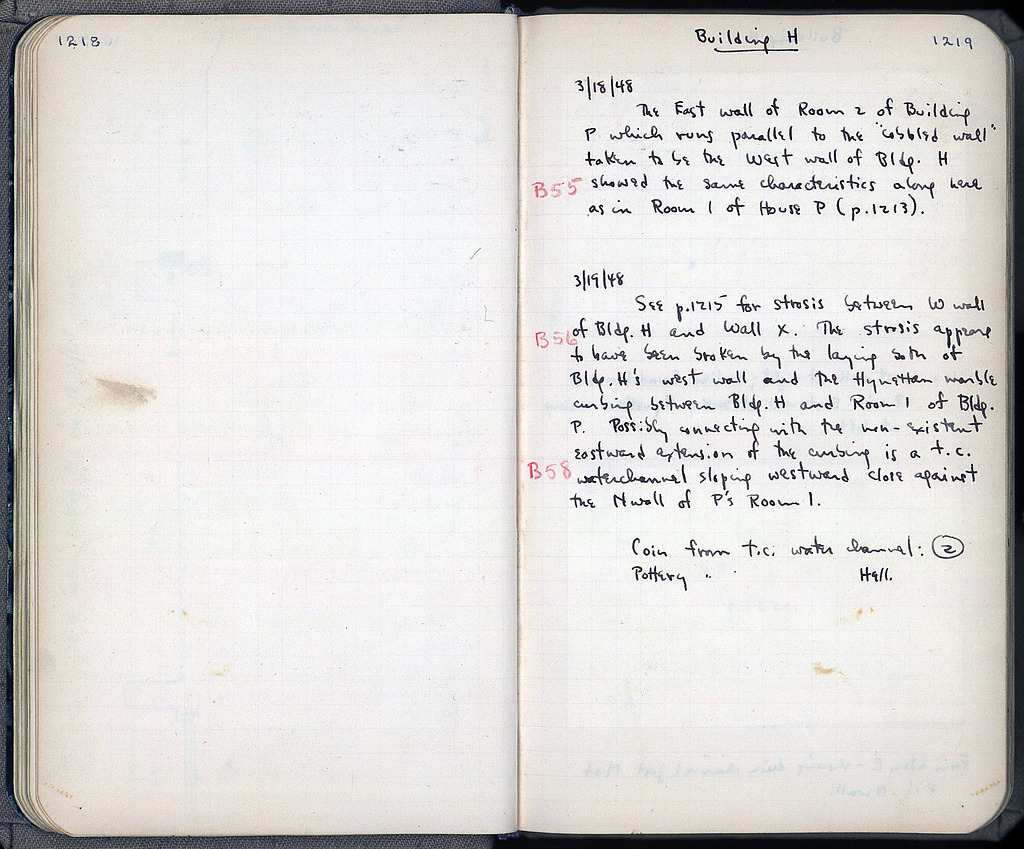 1218
Building H
1219
3/18/48
The East wall of Room 2 of Building
P which runs parallel to the "cobbled wall"
taken to be the west wall of Bldg. H
B55
showed the same characteristics along here
as in Room 1 of House P (p.1213).
3/19/48
See p.1215 for strosis between W wall
B56
of Bldg. H and Wall X. The strosis appears
to have been broken by the laying both of
Bldg. H's west wall and the Hymettian marble
curbing between Bldg. H and Room 1 of Bldg.
P. Possibly connecting with the non-existent
eastward extension of the curbing is a t.c.
B58
waterchannel sloping westward close against
the N wall of P's Room 1.
Coin from t.c. water channel: 2
Pottery " Hell.